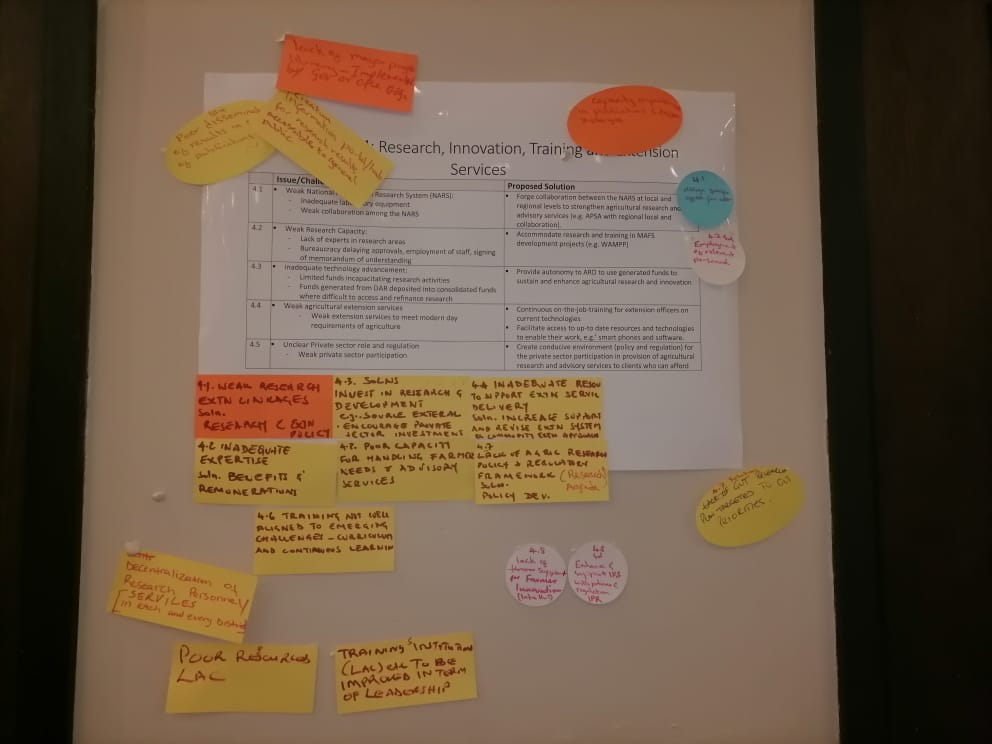 Lack of major
by Gov or other Orgs.
Poor
of results
of publications
information portal/hub
for research results
accessible to general
public
capacity
: Research, Innovation, Training and Extension
Services
Issue/Challe
Proposed Solution
4.1
Weak National Research System (NARS):
- Inadequate laboratory equipment
- Weak collaboration among the NARS
Forge collaboration between the NARS at local and
regional levels to strengthen agricultural research and
advisory services (e.g. APSA with regional local and
collaboration).
4.2
Weak Research Capacity:
- Lack of experts in research areas
- Bureaucracy delaying approvals, employment of staff, signing
of memorandum of understanding
Accommodate research and training in MAFS
development projects (e.g. WAMPP)
4.3
Inadequate technology advancement:
- Limited funds incapacitating research activities
- Funds generated from DAR deposited into consolidated funds
where difficult to access and refinance research
Provide autonomy to ARD to use generated funds to
sustain and enhance agricultural research and innovation
4.4
Weak agricultural extension services
- Weak extension services to meet modern day
requirements of agriculture
Continuous on-the-job-training for extension officers on
current technologies
Facilitate access to up-to date resources and technologies
to enable their work, e.g.' smart phones and software.
4.5
Unclear Private sector role and regulation
- Weak private sector participation
Create conducive environment (policy and regulation) for
the private sector participation in provision of agricultural
research and advisory services to clients who can afford
4.1
4.2 Sol
Employment
of relevant
personnel
4.1. WEAK RESEARCH
EXTN LINKAGES
Soln.
RESEARCH & EXTN
POLICY
4.3. SOLNS
INVEST IN RESEARCH &
DEVELOPMENT
e.g. SOURCE EXTERNAL
. ENCOURAGE PRIVATE
SECTOR INVESTMENT
4.4 INADEQUATE RESOU
TO SUPPORT EXTN SERVIC
DELIVERY
Soln. INCREASE SUPPORT
AND REVISE EXTN SYSTEM
4.2 INADEQUATE
EXPERTISE
Soln. BENEFITS &
REMUNERATIONS
4.2. POOR CAPACITY
FOR HANDLING FARMER
NEEDS & ADVISORY
SERVICES
4.7
LACK OF AGRIC RESEARCH
POLICY & REGULATORY
FRAMEWORK (Research
Agenda)
Soln.
POLICY DEV.
4.6 TRAINING NOT WELL
ALIGNED TO EMERGING
CHALLENGES - CURRICULUM
AND CONTINUOUS LEARNIN
TARGETED TO GVT
PRIORITIES.
4.8
Lack of
Support
for Farmer
Innovation
4.8
Sol
Enhance &
Support
IPR
Decentralization of
Research Personnel/
SERVICES
in each and every District
POOR RESOURCES
LAC
TRAINING INSTITUTION
(LAC) etc TO BE
IMPROVED IN TERM
OF LEADERSHIP